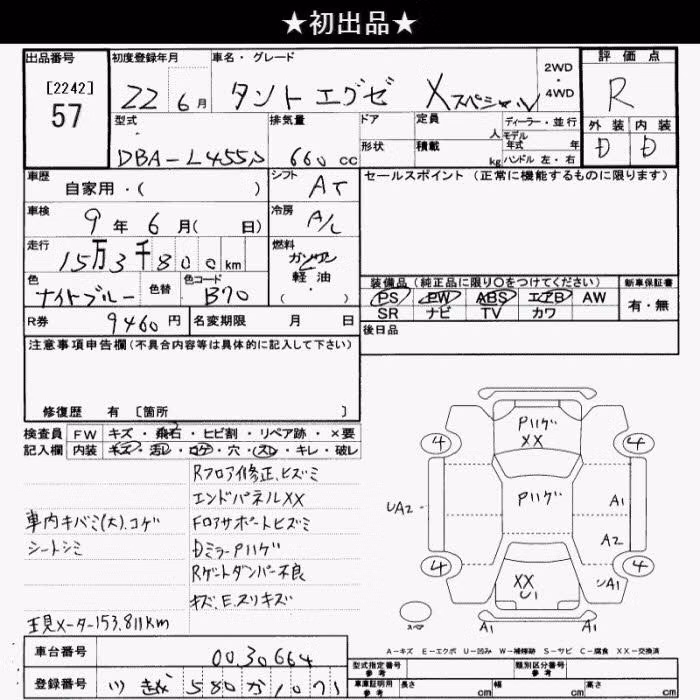 ★初出品★
出品番号
[2242]
57
初度登録年月
22 6月
車名・グレード
タントエグゼ Xスペシャル
2WD
・
4WD
評価点
R
外装 内装
D D
型式
DBA-L455S
排気量
660 cc
ドア
形状
定員
人
積載
kg
ディーラー・並行
モデル
年式 年
ハンドル 左・右
車歴
自家用・( )
シフト
AT
セールスポイント (正常に機能するものに限ります)
車検
9年6月( 日)
冷房
A/C
走行
15万3千800km
燃料
ガソリン
軽油
( )
色
ナイトブルー
色替
色コード
B70
装備品 (純正品に限り○をつけてください)
PS PW ABS エアB AW
SR ナビ TV カワ
新車保証書
有・無
R券
9460円
名変期限 月 日
後日品
注意事項申告欄(不具合内容等は具体的に記入して下さい)
修復歴 有 [箇所 ]
検査員
記入欄
FW キズ・飛石・ヒビ割・リペア跡・×要
内装 キズ・汚レ・コゲ・穴・スレ・キレ・破レ
Rフロア修正、ヒズミ
エンドパネルXX
車内キバミ(大)、コゲ
Fロアサポートヒズミ
シートシミ
DミラーPハゲ
Rゲートダンパー不良
キズ、E、スリキズ
現メーター153,811km
Pハゲ
XX
4 4
Pハゲ
UA2
A1
A2
4 4
XX
U1
UA1
スペア
A1 A1
A-キズ E-エクボ U-凹み W-補修跡 S-サビ C-腐食 XX-交換済
車台番号
0030664
登録番号
川越 580 か 1071
型式指定番号
参考
類別区分番号
参考
車庫証明用
参考
長さ cm 幅 cm 高さ cm